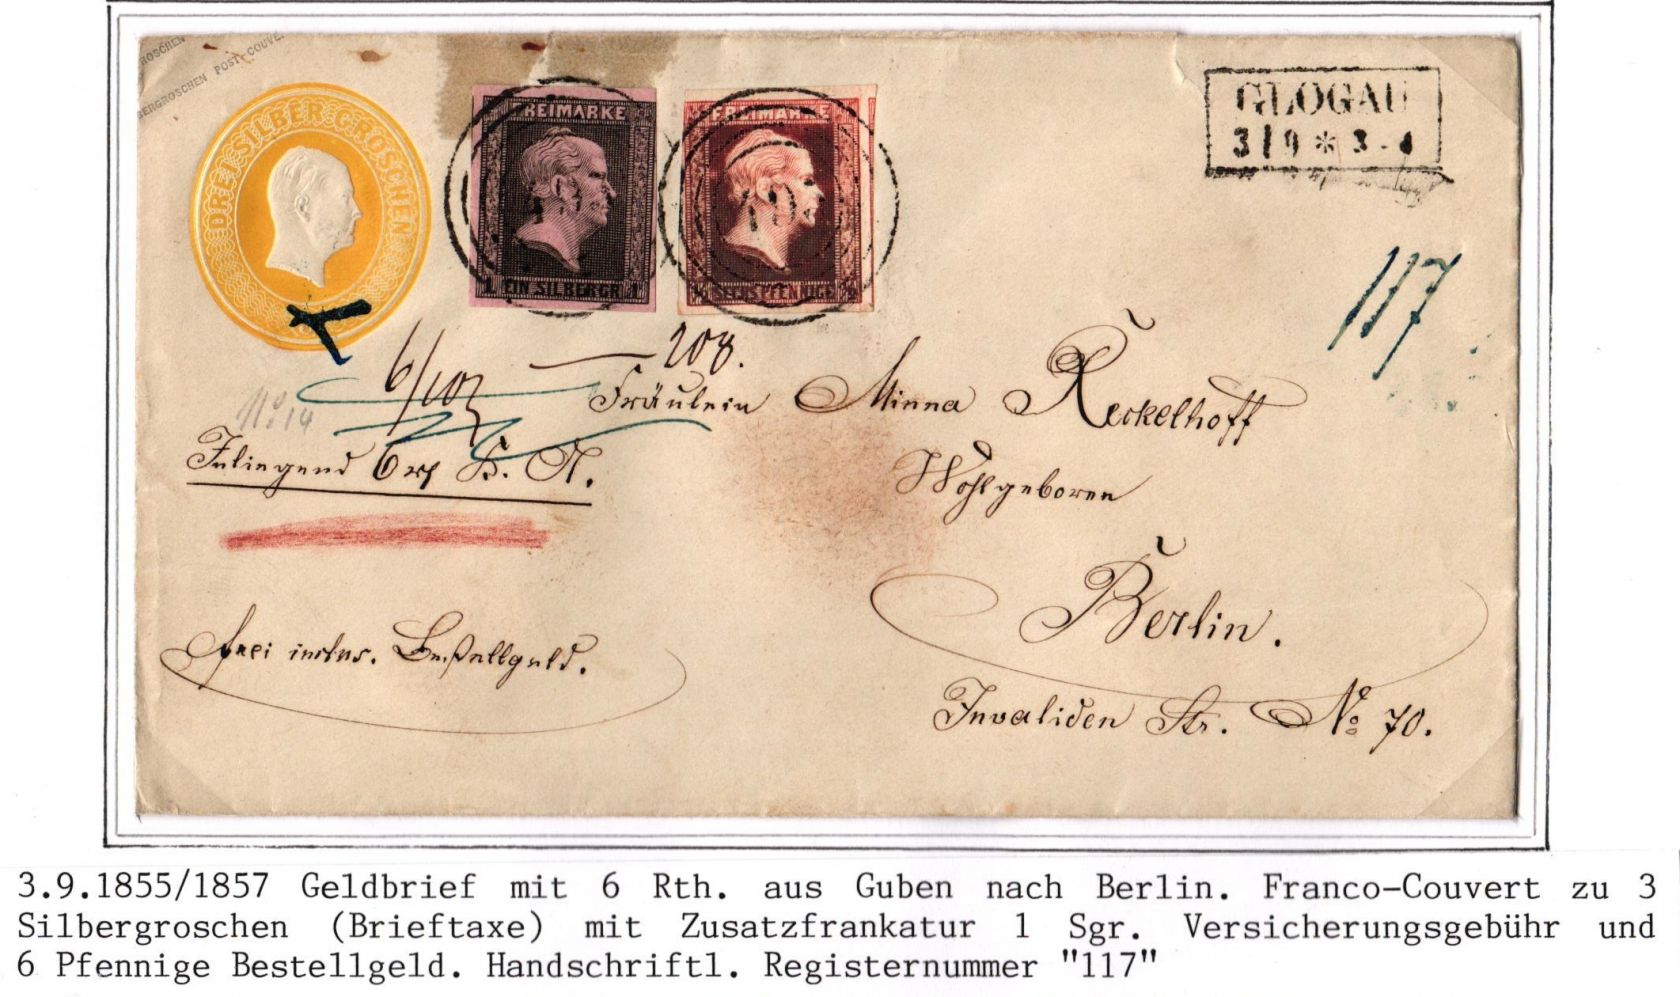 GROSCHEN
BERGROSCHEN POST-COUVE
DREI SILBER GROSCHEN
FREIMARKE
1 EIN SILBERGR. 1
FREIMARKE
½ SECHS PFENNIGE ½
GLOGAU
3/9 * 3-4
117
6/107
208.
No 14
Fräulein Minna Reckelhoff
Inliegend 6 rf K. A.
Wohlgeboren
Berlin.
frei inclus. Bestellgeld.
Invaliden Str. No 70.
3.9.1855/1857 Geldbrief mit 6 Rth. aus Guben nach Berlin. Franco-Couvert zu 3
Silbergroschen (Brieftaxe) mit Zusatzfrankatur 1 Sgr. Versicherungsgebühr und
6 Pfennige Bestellgeld. Handschriftl. Registernummer "117"